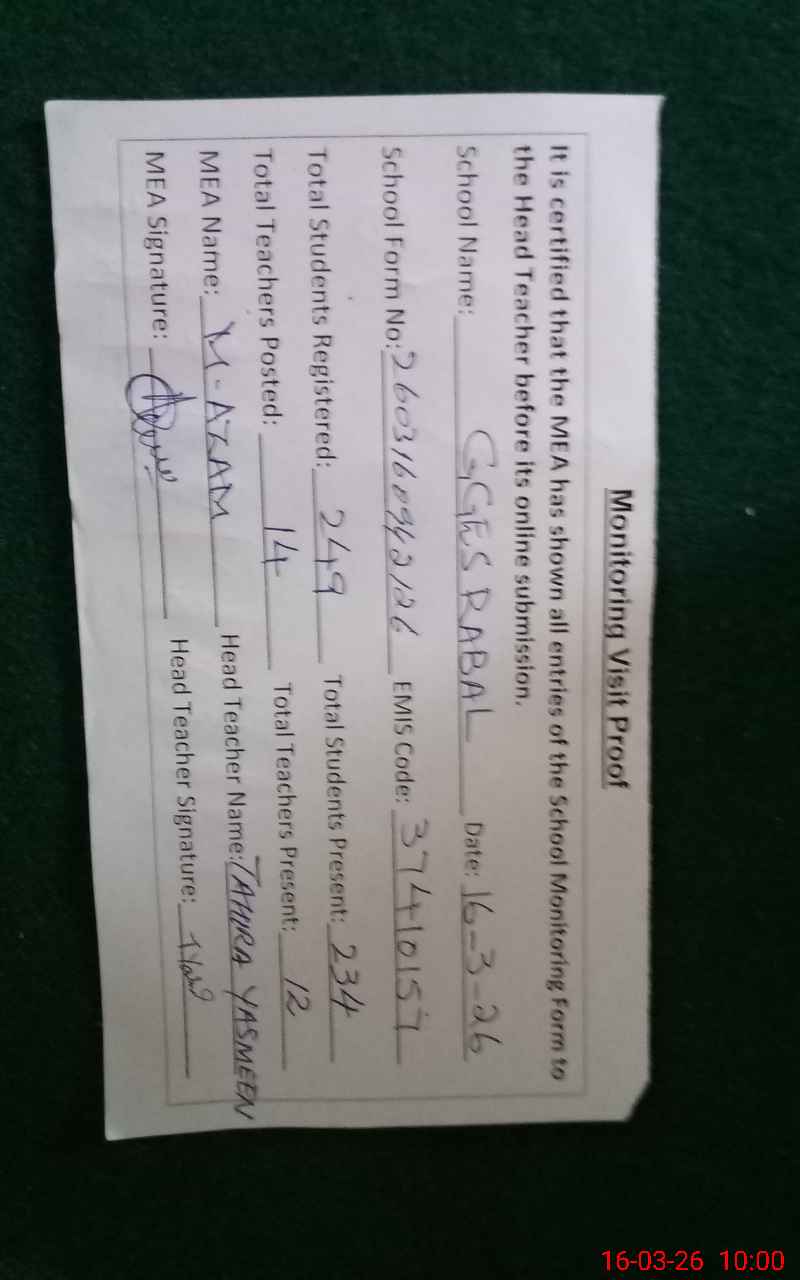 Monitoring Visit Proof
It is certified that the MEA has shown all entries of the School Monitoring Form to
the Head Teacher before its online submission.
School Name: GGES RABAL Date: 16-3-26
School Form No: 2603160942126 EMIS Code: 37410157
Total Students Registered: 249 Total Students Present: 234
Total Teachers Posted: 14 Total Teachers Present: 12
MEA Name: M-AZAM Head Teacher Name: TAHIRA YASMEEN
MEA Signature: Head Teacher Signature:
16-03-26 10:00